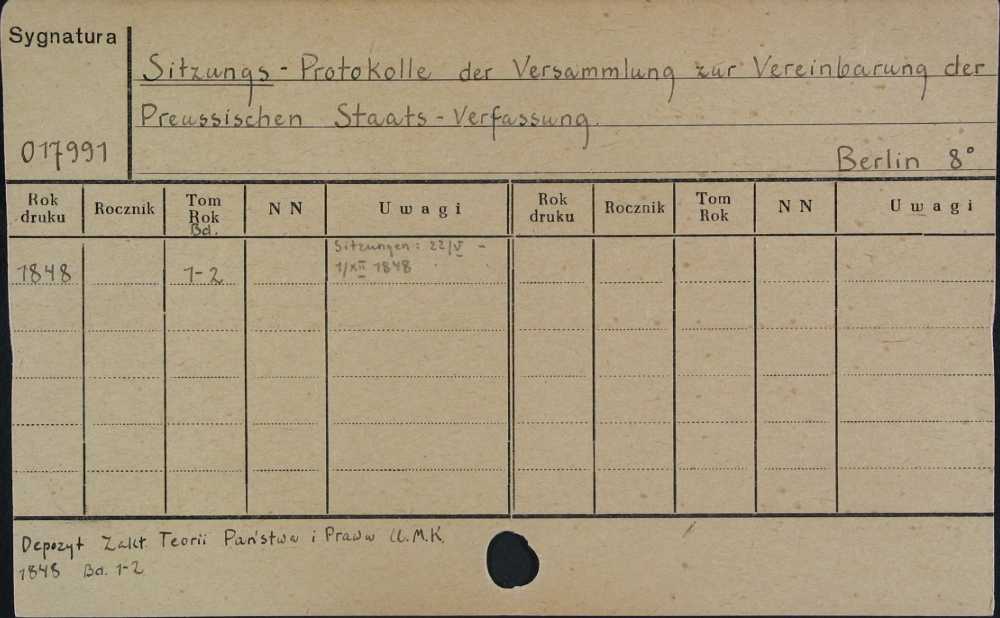 Sygnatura
Sitzungs - Protokolle der Versammlung zur Vereinbarung der
Preussischen Staats - Verfassung.
017991
Berlin 8°
Rok druku Rocznik Tom Rok Bd. N N Uwagi Rok druku Rocznik Tom Rok N N Uwagi
Sitzungen: 22/V -
1848 1-2 1/XII 1848
Depozyt Zakł. Teorii Państwa i Prawa U.M.K.
1848 Bd. 1-2